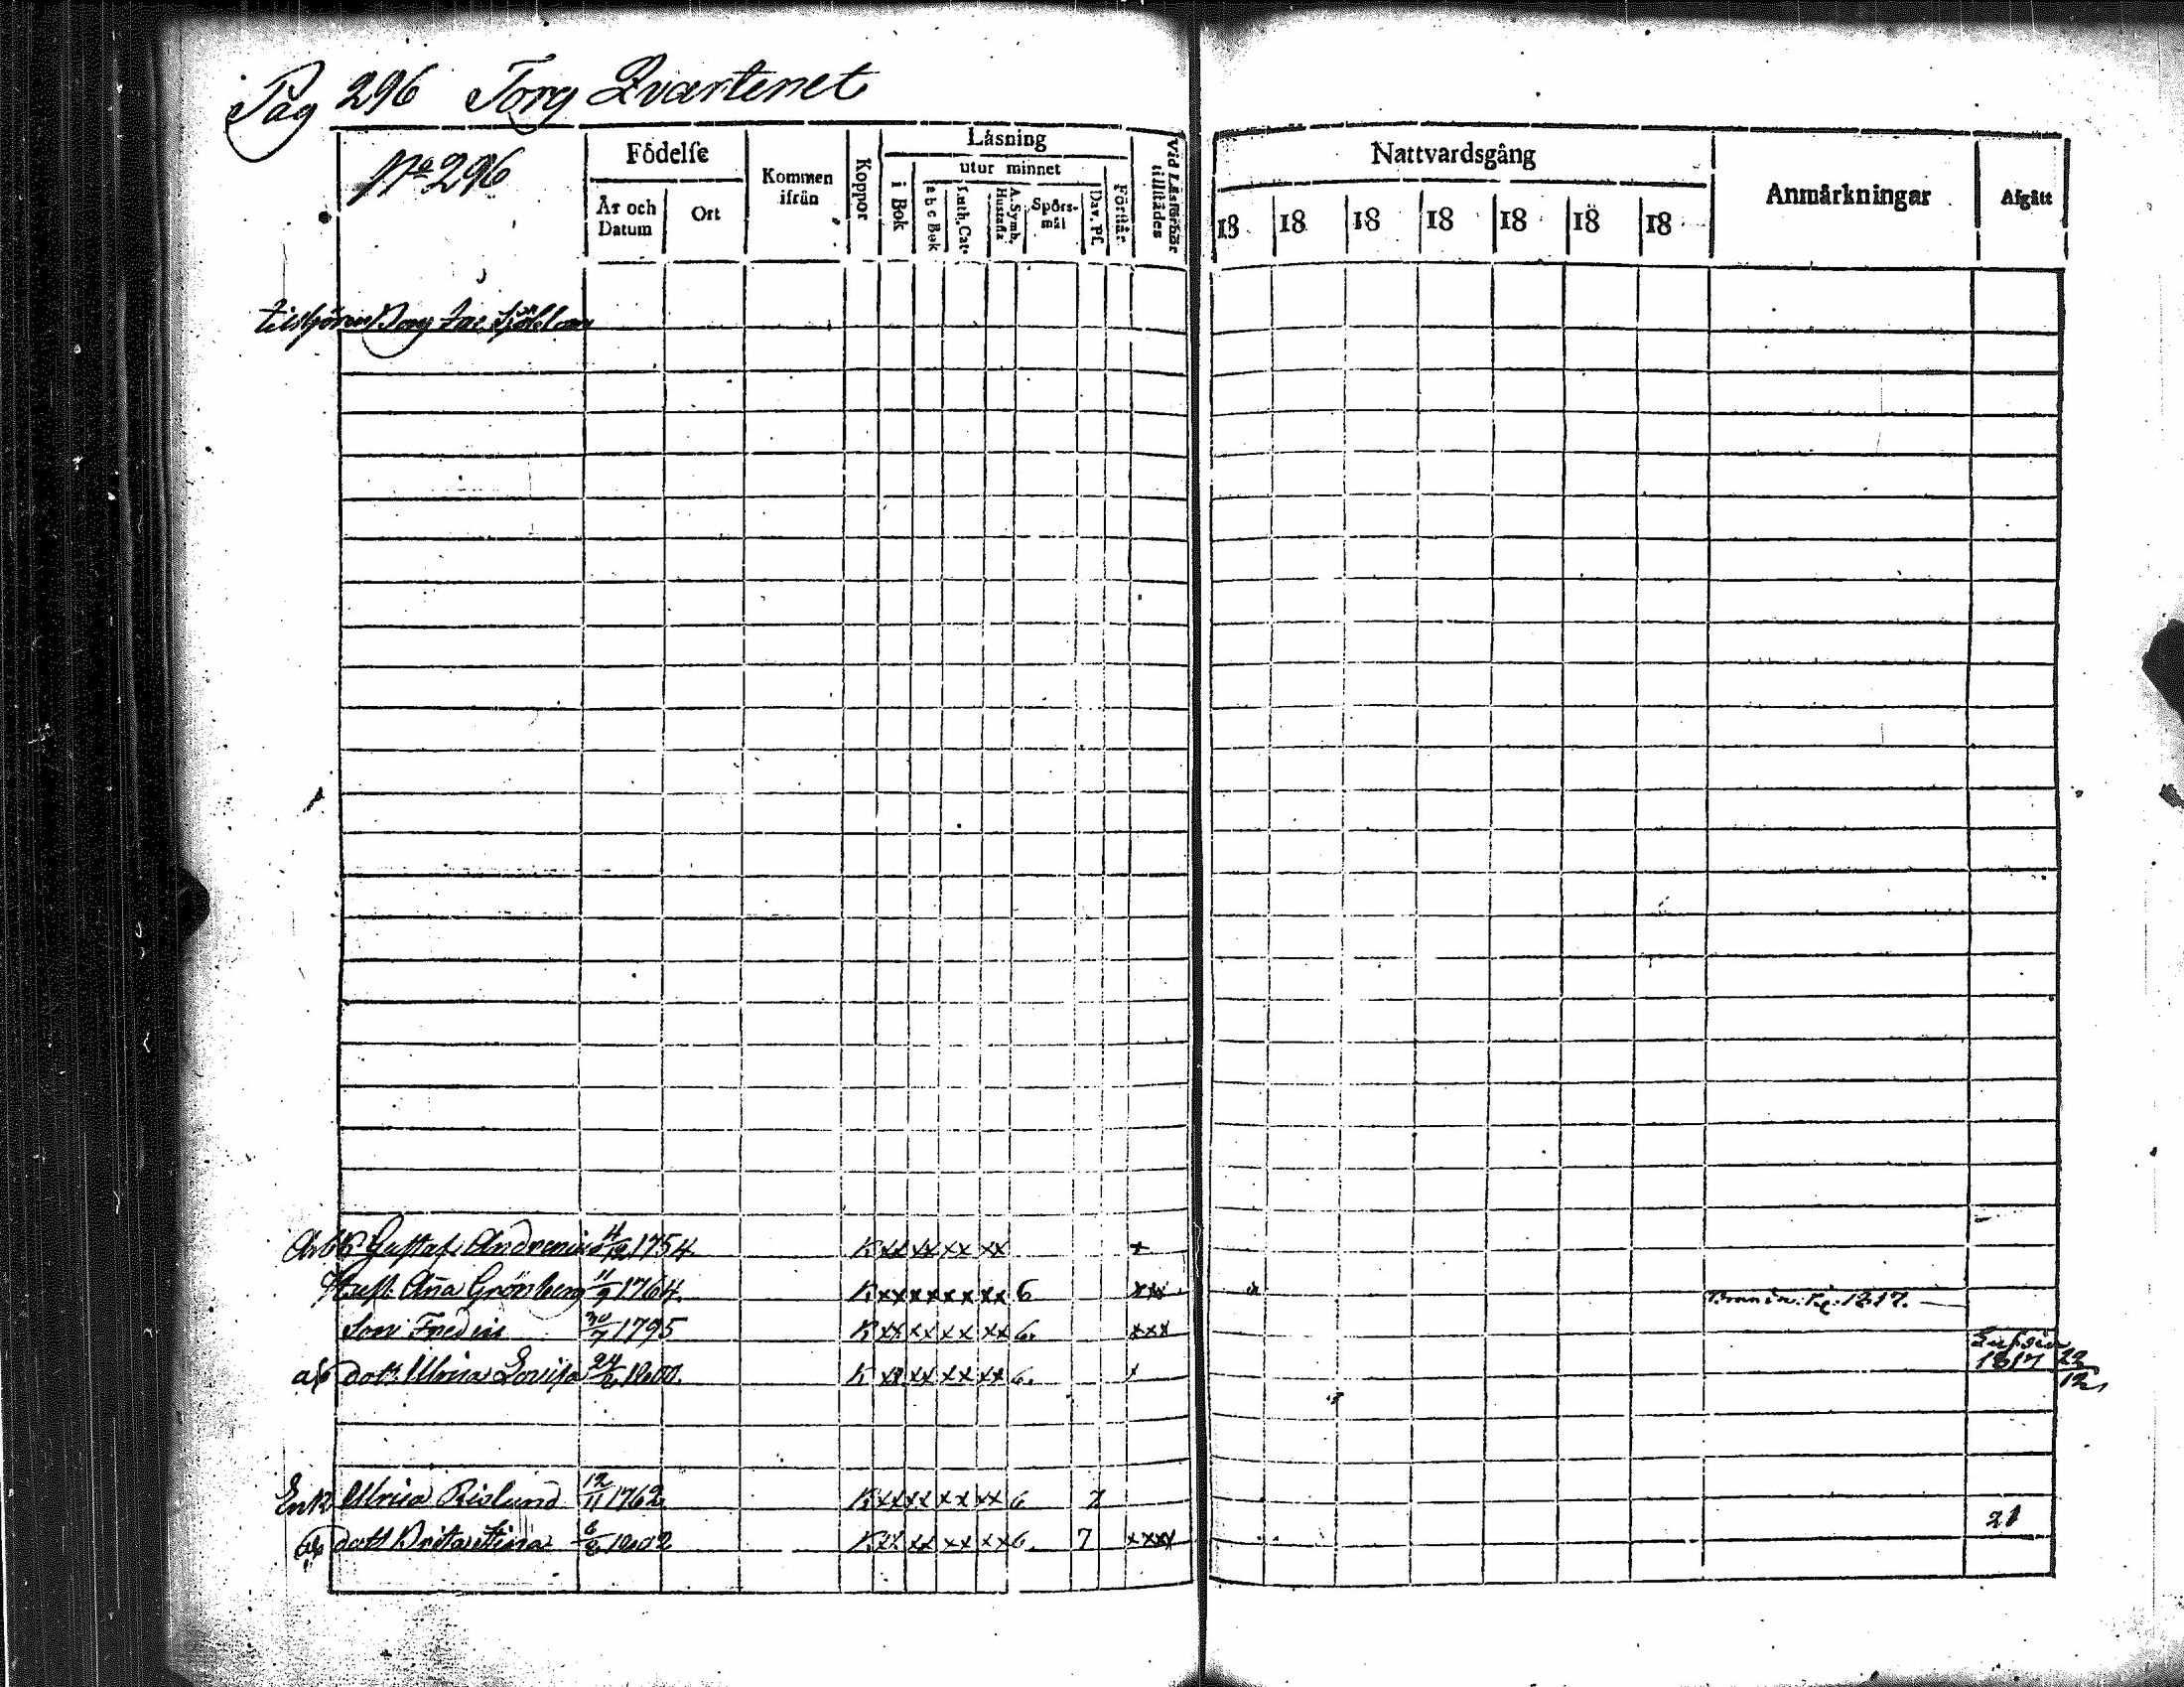 Pag 296 Torg Qvarteret
No 296
Födelse
År och Datum
Ort
Kommen ifrån
Koppor
Läsning
i Bok
utur minnet
a b c Bok
Luth. Cat.
A. Symb. Hustafla
Spörsmål
Dav. Ps.
Förstår
Vid Läsförhör tillstädes
Nattvardsgång
18 18 18 18 18 18 18
Anmärkningar
Afgått
tilhörer Borg Jac
Arb k Gustaf Andrenius 4/12 1754 K xx xx xx xx x
Hust. Aña Grönberg 11/9 1764. K xx xx xx xx 6 xxx
1817.
Son Fredric 30/7 1795 K xx xx xx xx 6. xxx
dott. Ulrica Lovisa K xx xx xx xx 6. x
1817 22/12
Enk Ulrica Rislund 12/11 1762 K xx xx xx xx 6 7
dott Brita Stina K xx xx xx xx 6 7 xxxx
21